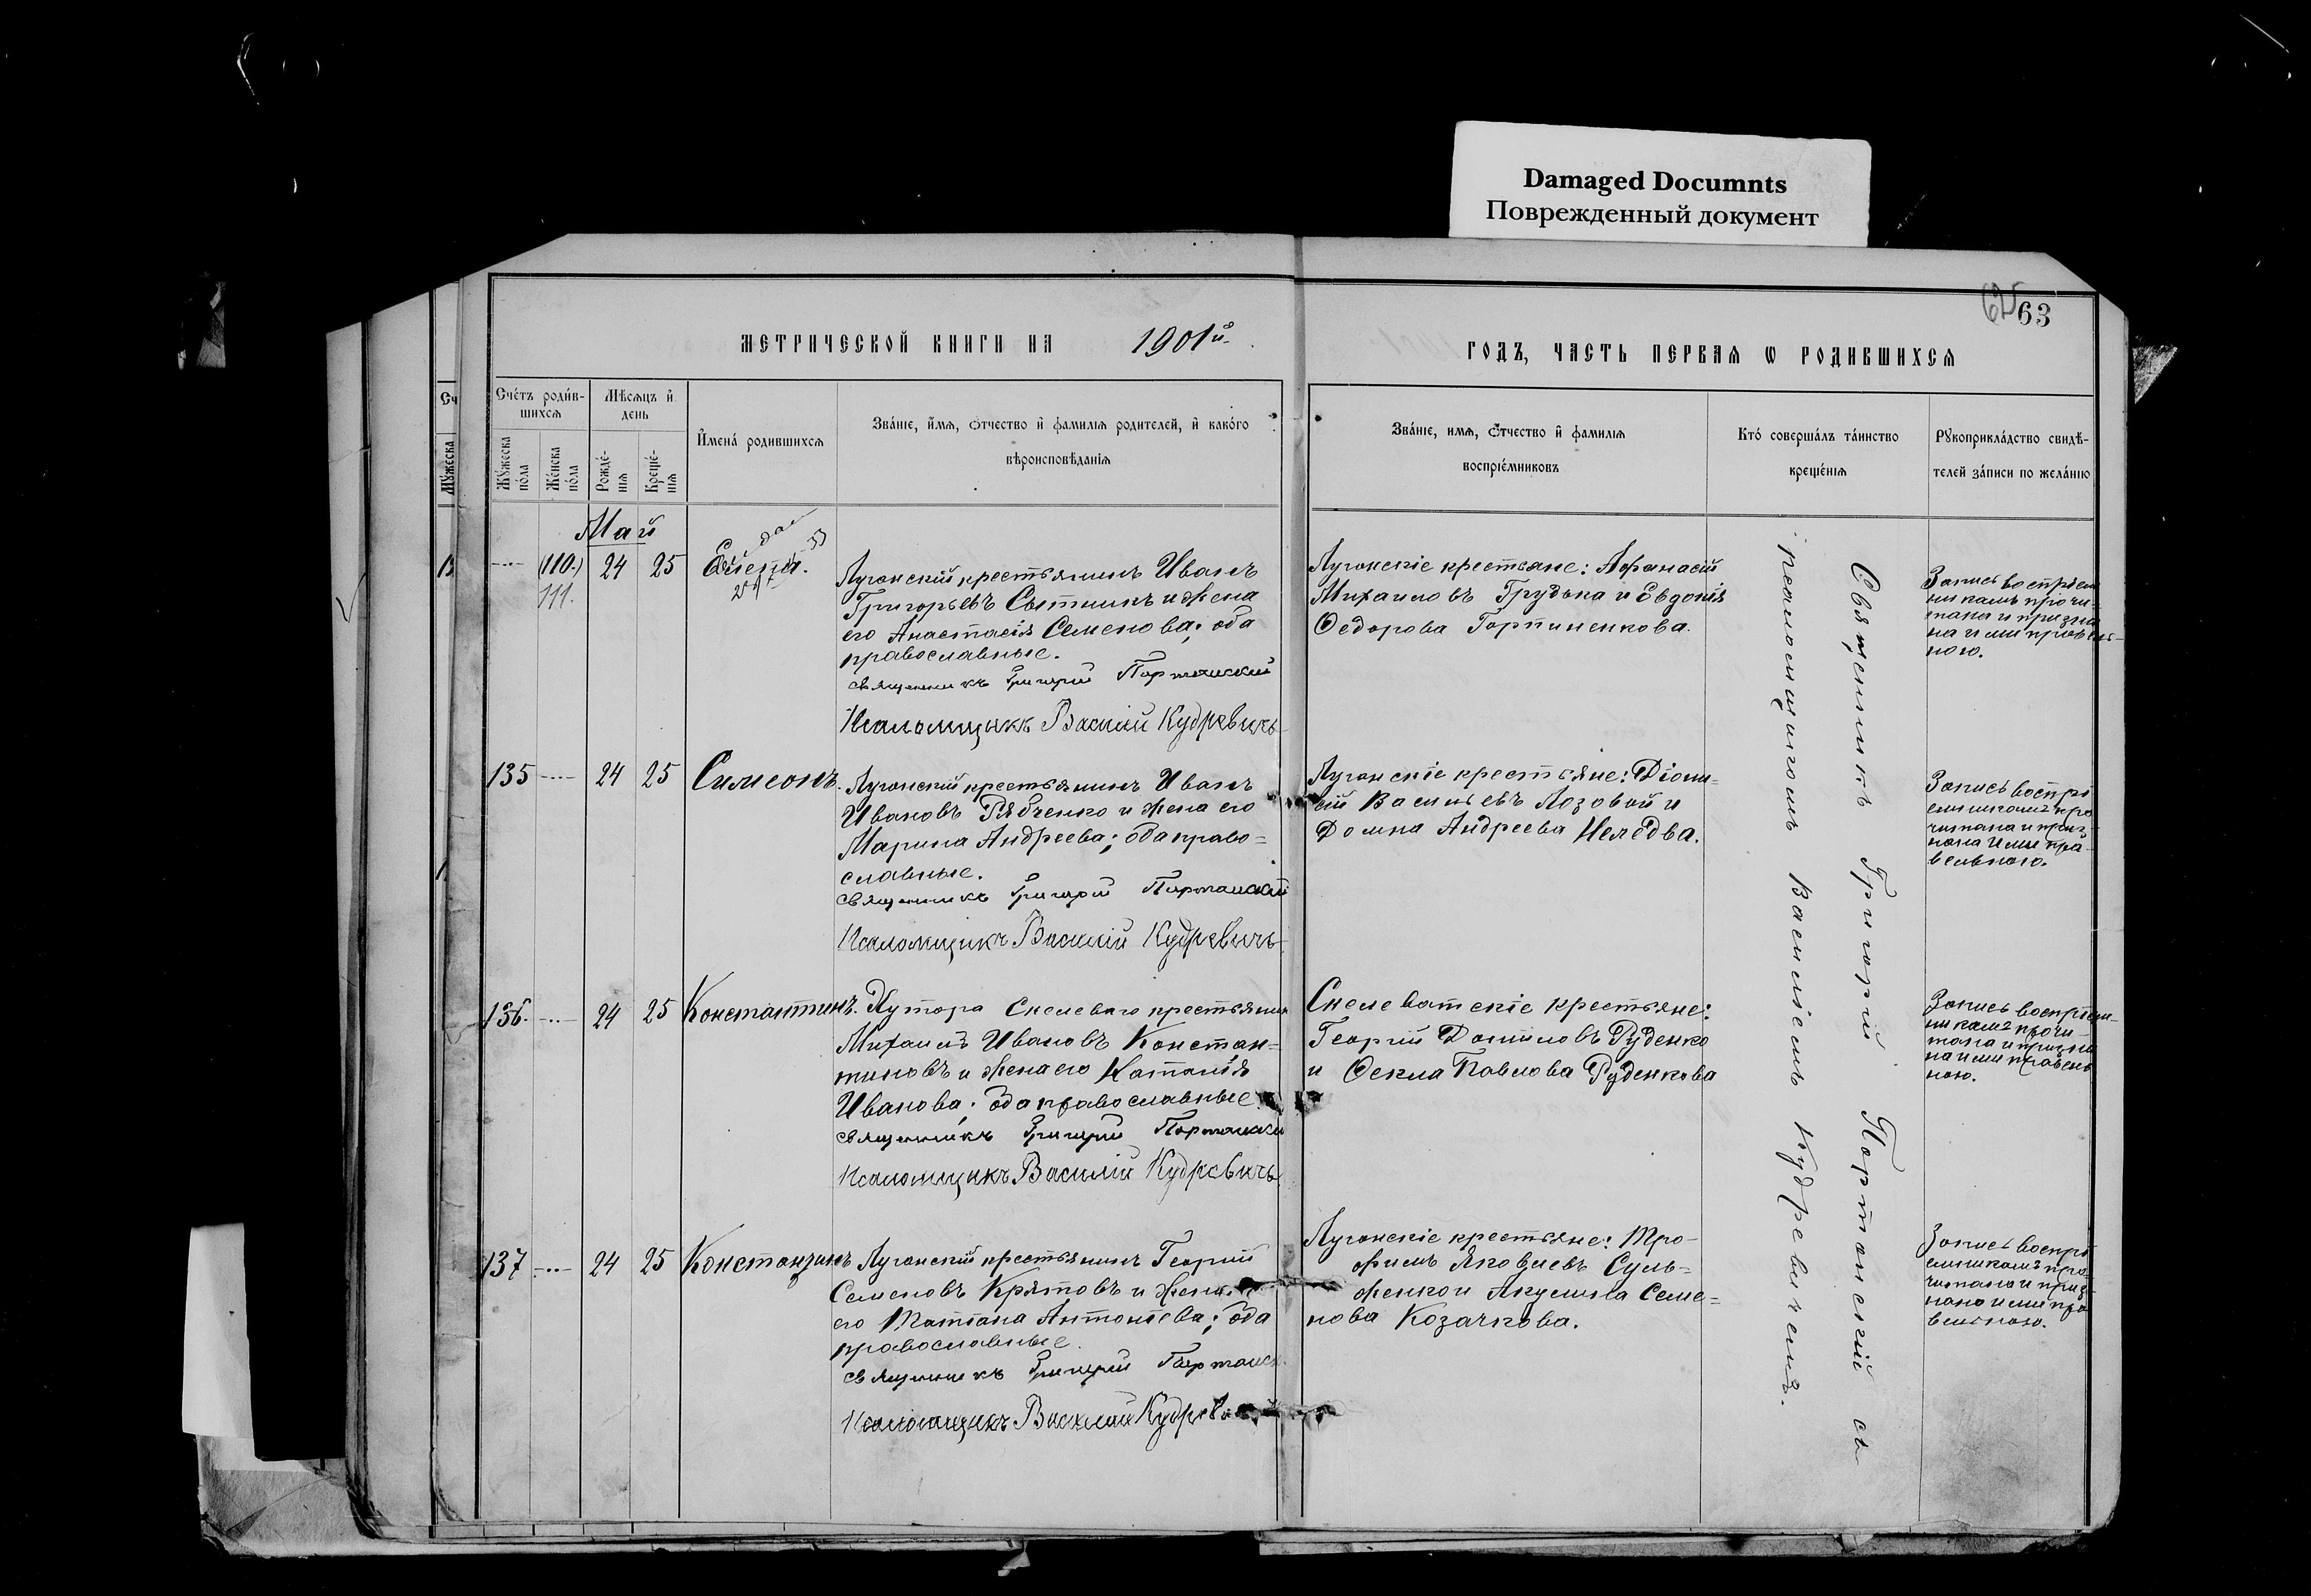 Damaged Documnts
Поврежденный документ
63
МЕТРИЧЕСКОЙ КНИГИ НА 1901й
ГОДЪ, ЧАСТЬ ПЕРВАЯ Ѡ РОДИВШИХСЯ
Сч
Мужеска
Счётъ роди́в-
шихся
Мѣсяцъ и
день
Мужеска
пола
Женска
пола
Рожде-
нія
Креще-
нія
Имена́ родившихся
Зва́ніе, и́мя, ѻтчество и фамилія родителей, и како́го
вѣроисповѣданія
Зва́ніе, имя, ѻтчество и фамилія
воспріе́мниковъ
Кто́ соверша́лъ та́инство
креще́нія
Рукоприкла́дство свидѣ-
телей за́писи по жела́нію
Май
(110.) 24 25 Елена.
111.
Луганскій крестьянинъ Иванъ
Григорьевъ Сытникъ и жена
его Анастасія Семенова; оба
православные.
священникъ Григорій Портанскій
Псаломщикъ Василій Кудревичъ
Луганскіе крестьяне: Афанасій
Михаиловъ Грудька и Евдокія
Ѳедорова Горпиненкова.
Запись воспріем
никамъ прочи-
тана и призна
на ими правиль-
ною.
135 24 25 Симеонъ.
Луганскій крестьянинъ Иванъ
Ивановъ Рябченко и жена его
Марина Андреева; оба право=
славные.
священникъ Григорій Портанскій
Псаломщикъ Василій Кудревичъ
Луганскіе крестьяне: Діони=
сій Васильевъ Лозовой и
Домна Андреева
Запись воспрі
емникамъ про
читана и приз-
нана ими пра-
вельною.
136. 24 25 Константинъ.
Хутора Скелеваго крестьянин
Михаилъ Ивановъ Констан=
тиновъ и жена его Наталія
Иванова; оба православные
священникъ Григорій Портански
Псаломщикъ Василій Кудревичъ
Скелеватскіе крестьяне:
Георгій Даниловъ Руденко
и Ѳекла Павлова Руденкова
Запись воспріем-
никамъ прочи-
тана и призна
на ими правель
ною.
137 24 25 Константинъ
Луганскій крестьянинъ Георгій
Семеновъ Крятовъ и жена
его Татіана Антоніева; оба
православные.
священникъ Григорій Портанск
Псаломщикъ Василій Кудрев
Луганскіе крестьяне: Тро-
фимъ Яковлевъ Суль=
женко и Акулина Семе=
нова Козачкова.
Запись воспрі
емникамъ про-
читана и приз-
нана ими пра
вельною.
Священникъ Григорій Портанскій съ
псаломщикомъ Василіемъ Кудревичемъ.